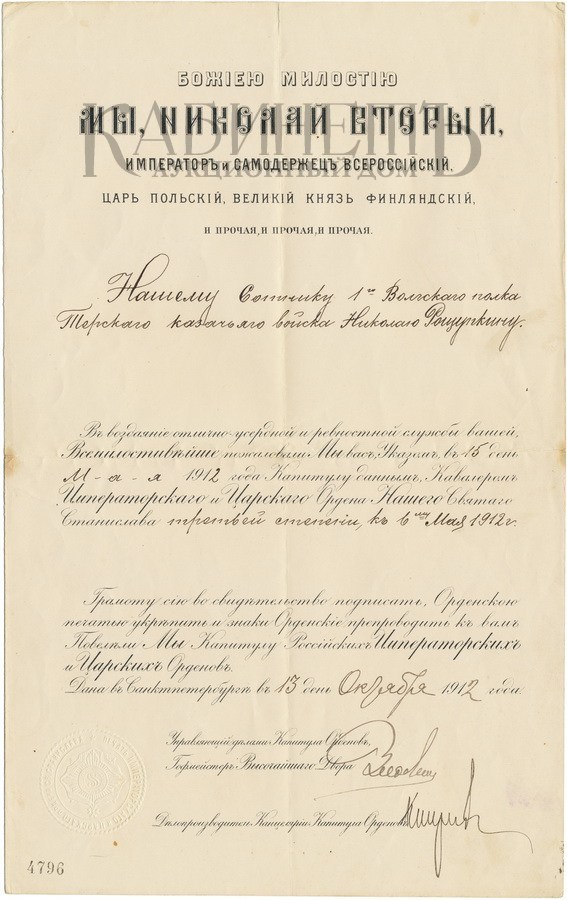 БОЖІЕЮ МИЛОСТІЮ
МЫ, НИКОЛАЙ ВТОРЫЙ,
КАБИНЕТЪ
АУКЦИОННЫЙ ДОМ
ИМПЕРАТОРЪ и САМОДЕРЖЕЦЪ ВСЕРОССІЙСКІЙ,
ЦАРЬ ПОЛЬСКІЙ, ВЕЛИКІЙ КНЯЗЬ ФИНЛЯНДСКІЙ,
И ПРОЧАЯ, И ПРОЧАЯ, И ПРОЧАЯ.
Нашему Сотнику 1го Волгскаго полка
Терскаго казачьяго войска Николаю Рощупкину.
Въ воздаяніе отлично-усердной и ревностной службы вашей,
Всемилостивѣйше пожаловали Мы васъ, Указомъ, въ 15 день
М-а-я 1912 года Капитулу даннымъ, Кавалеромъ
Императорскаго и Царскаго Ордена Нашего Святаго
Станислава третьей степени, къ 6му Мая 1912 г.
Грамоту сію во свидѣтельство подписать, Орденскою
печатью укрѣпить и знаки Орденскіе препроводить къ вамъ
Повелѣли Мы Капитулу Россійскихъ Императорскихъ
и Царскихъ Орденовъ.
Дана въ Санктпетербургѣ въ 13 день Октября 1912 года.
Управляющій дѣлами Капитула Орденовъ,
Гофмейстеръ Высочайшаго Двора
Дѣлопроизводитель Канцеляріи Капитула Орденовъ
4796